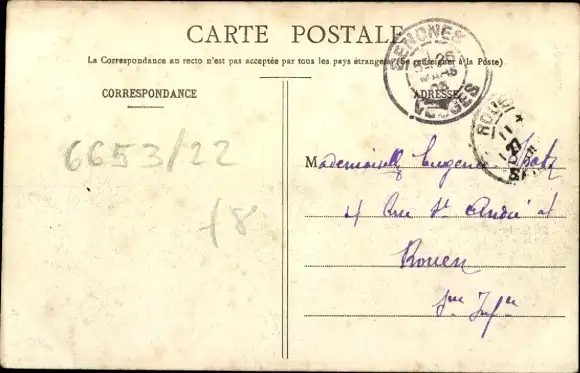 CARTE POSTALE
La Correspondance au recto n'est pas acceptée par tous les pays étrangers (Se renseigner à la Poste)
CORRESPONDANCE
ADRESSE
SENONES
VOSGES
ROUEN
6653/22
Mademoiselle Eugénie
4 Rue St André 4
Rouen
Sne Infre